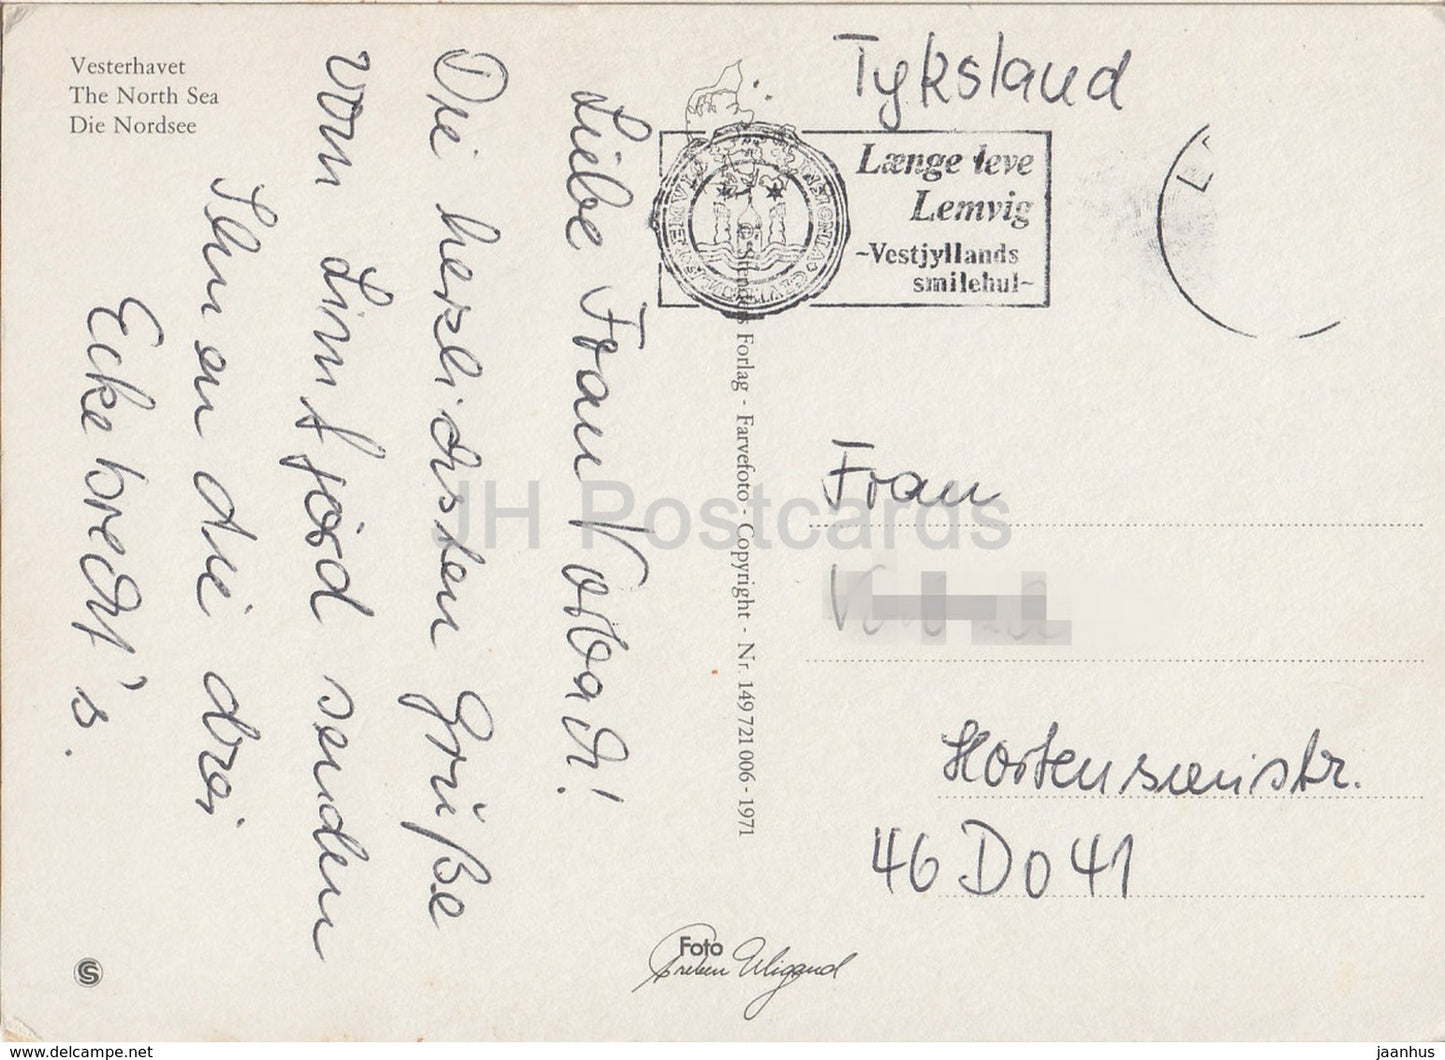 Vesterhavet
The North Sea
Die Nordsee
Liebe Frau Vorbach!
Die herzlichsten Grüße
vom Limfjord senden
Ihnen die drei
Eckebrecht's.
Tyksland
Længe leve
Lemvig
~Vestjyllands
smilehul~
Forlag - Farvefoto - Copyright - Nr. 149 721 006 - 1971
Frau
Hortensienstr.
46 Do 41
Foto
Preben Wigand
JH Postcards
www.delcampe.net
jaanhus